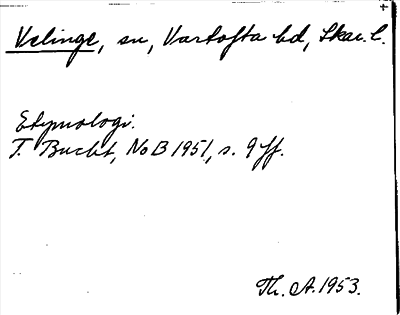 Velinge, sn, Vartofta hd, Skar. l.
Etymologi.
T. Bucht, NoB 1951, s. 9 ff.
Th. A. 1953.